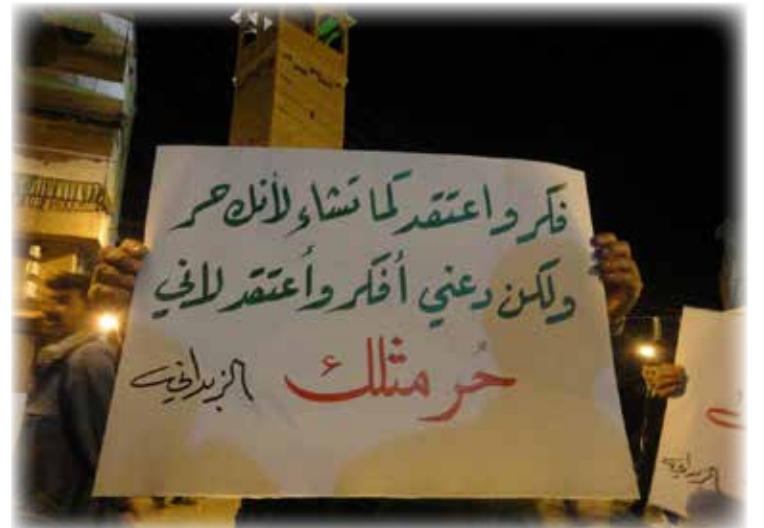 فكر واعتقد كما تشاء لأنك حر
ولكن دعني أفكر وأعتقد لاني
حُر مثلك
الزبداني
الزبداني